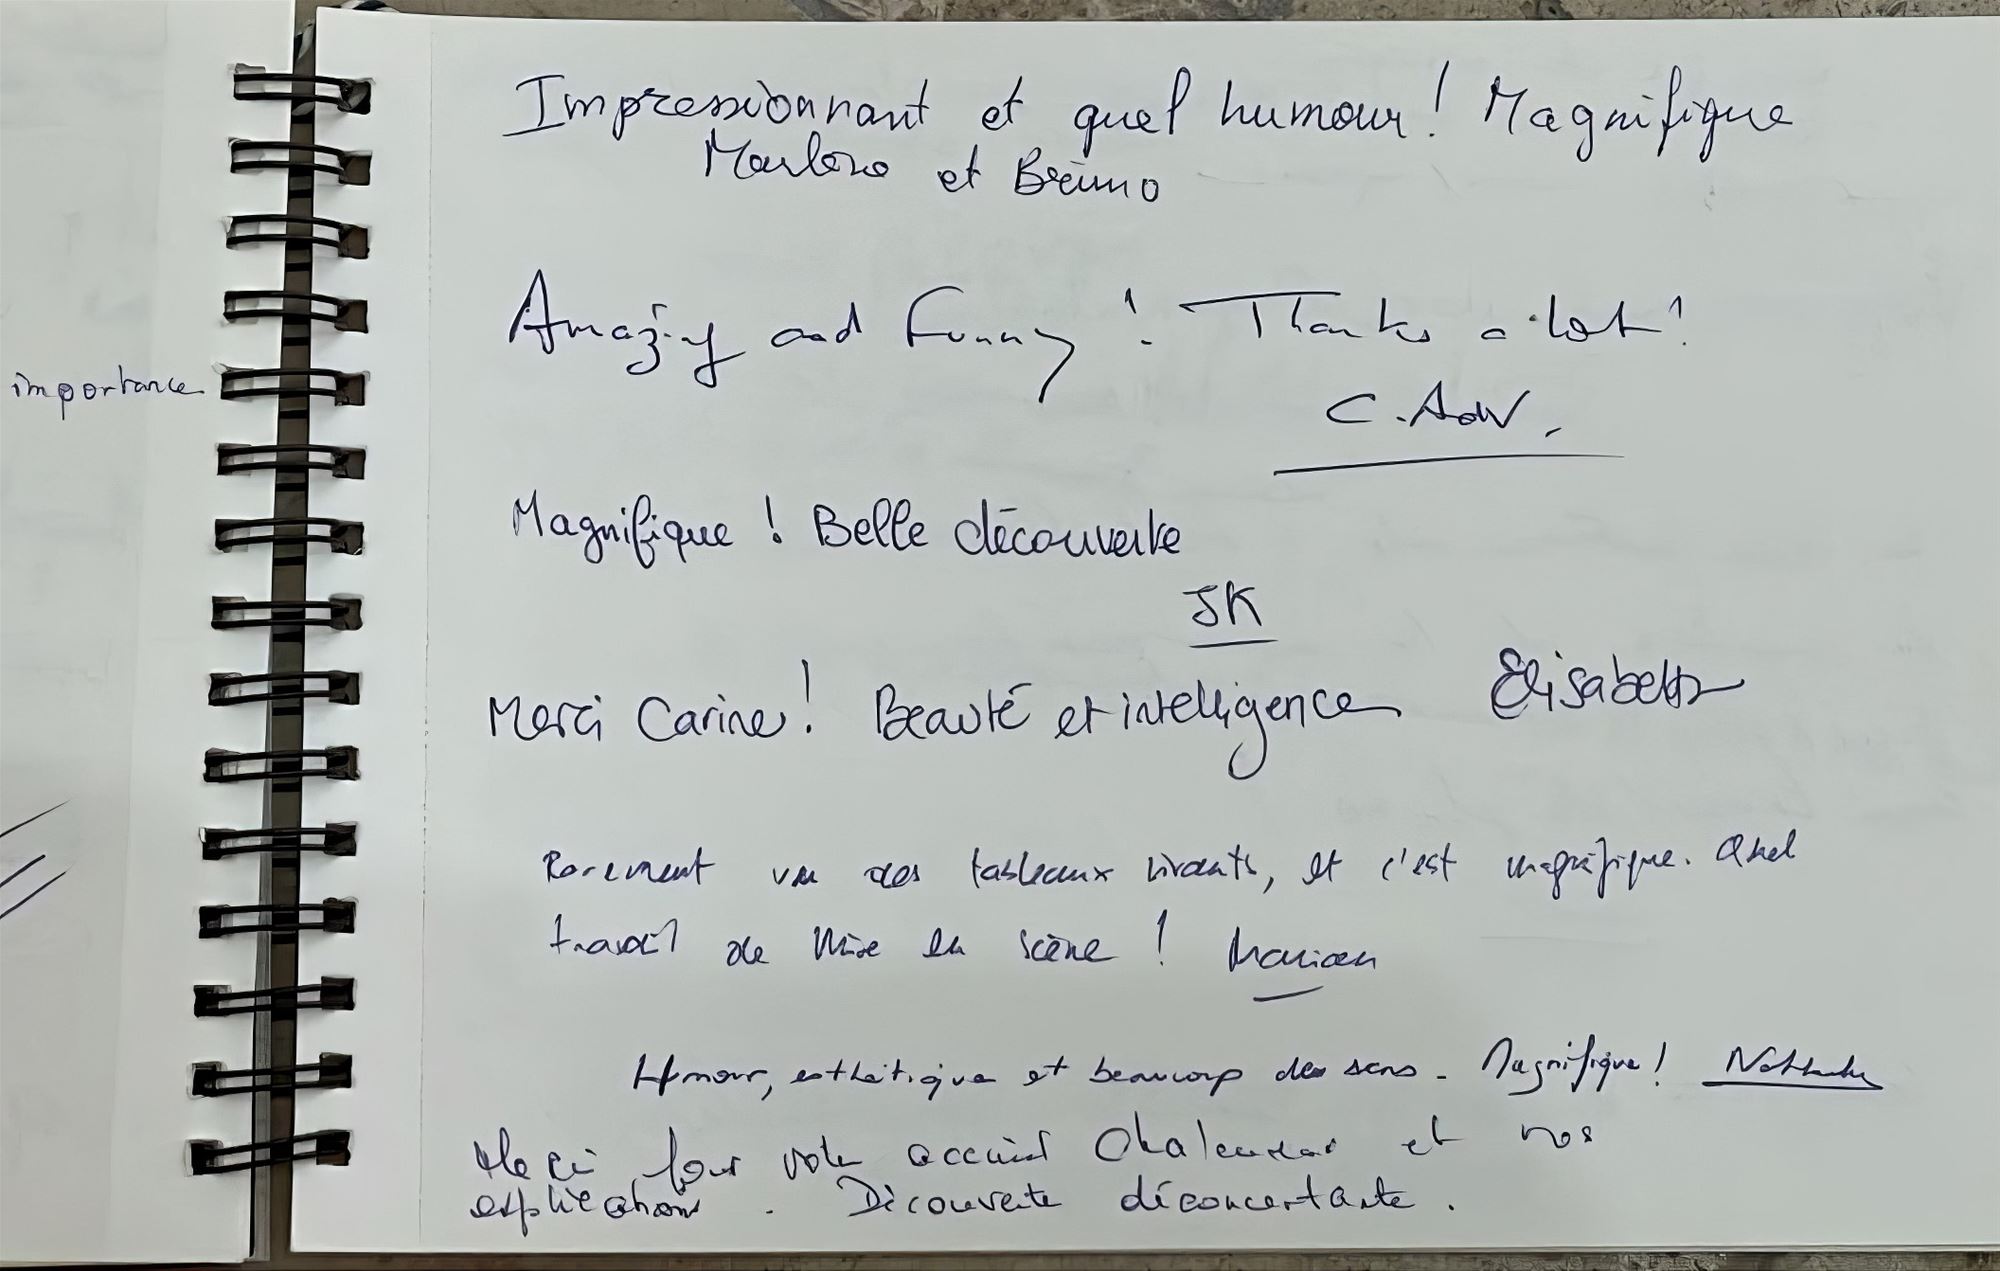 importance
Impressionnant et quel humour ! Magnifique
et Bruno
Amazing and Funny ! Thanks a lot !
C.
Magnifique ! Belle découverte
JK
Merci Carine ! Beauté et intelligence Elisabeth
Rarement vu des tableaux vivants, et c'est magnifique. Quel
travail de mise en scène ! Marian
Humour, esthétique et beaucoup de sens. Magnifique !
Merci pour votre accueil chaleureux et nos
explications. Découverte déconcertante.